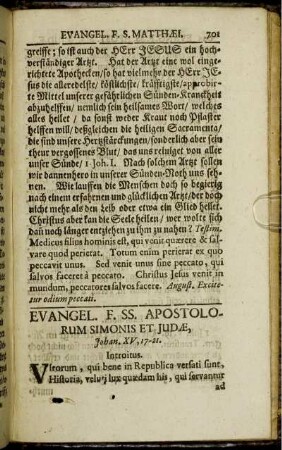 EVANGEL. F. S. MATTHÆI. 701
greiffe; so ist auch der HErr JESUS ein hoch-
verständiger Artzt. Hat der Artzt eine wol einge-
richtete Apothecken / so hat vielmehr der HErr JE-
sus die alleredelste / köstlichste / kräfftigste / approbir-
te Mittel unserer gefährlichen Sünden-Kranckheit
abzuhelffen / nemlich sein heilsames Wort / welches
alles heilet / da sonst weder Kraut noch Pflaster
helffen will / deßgleichen die heiligen Sacramenta /
die sind unsere Hertzstärckungen / sonderlich aber sein
theur vergossenes Blut / das uns reiniget von aller
unser Sünde / 1 Joh. I. Nach solchem Artzt sollen
wir dannenhero in unserer Sünden-Noth uns seh-
nen. Wie lauffen die Menschen doch so begierig
nach einem erfahrnen und glücklichen Artzt / der doch
nicht mehr als den Leib oder etwa ein Glied heilet
Christus aber kan die Seele heilen / wer wolte sich
dan noch länger entziehen zu ihm zu nahen? Testim.
Medicus filius hominis est, qui venit quærere & sal-
vare quod perierat. Totum enim perierat ex quo
peccavit unus. Sed venit unus sine peccato, qui
salvos faceret à peccato. Christus Jesus venit in
mundum, peccatores salvos facere. August. Excite-
tur odium peccati.
EVANGEL. F. SS. APOSTOLO-
RUM SIMONIS ET JUDÆ,
Johan. XV, 17-21.
Introitus.
Virorum, qui bene in Republica versati sunt,
Historia, velut lux quædam his, qui servantur
ad